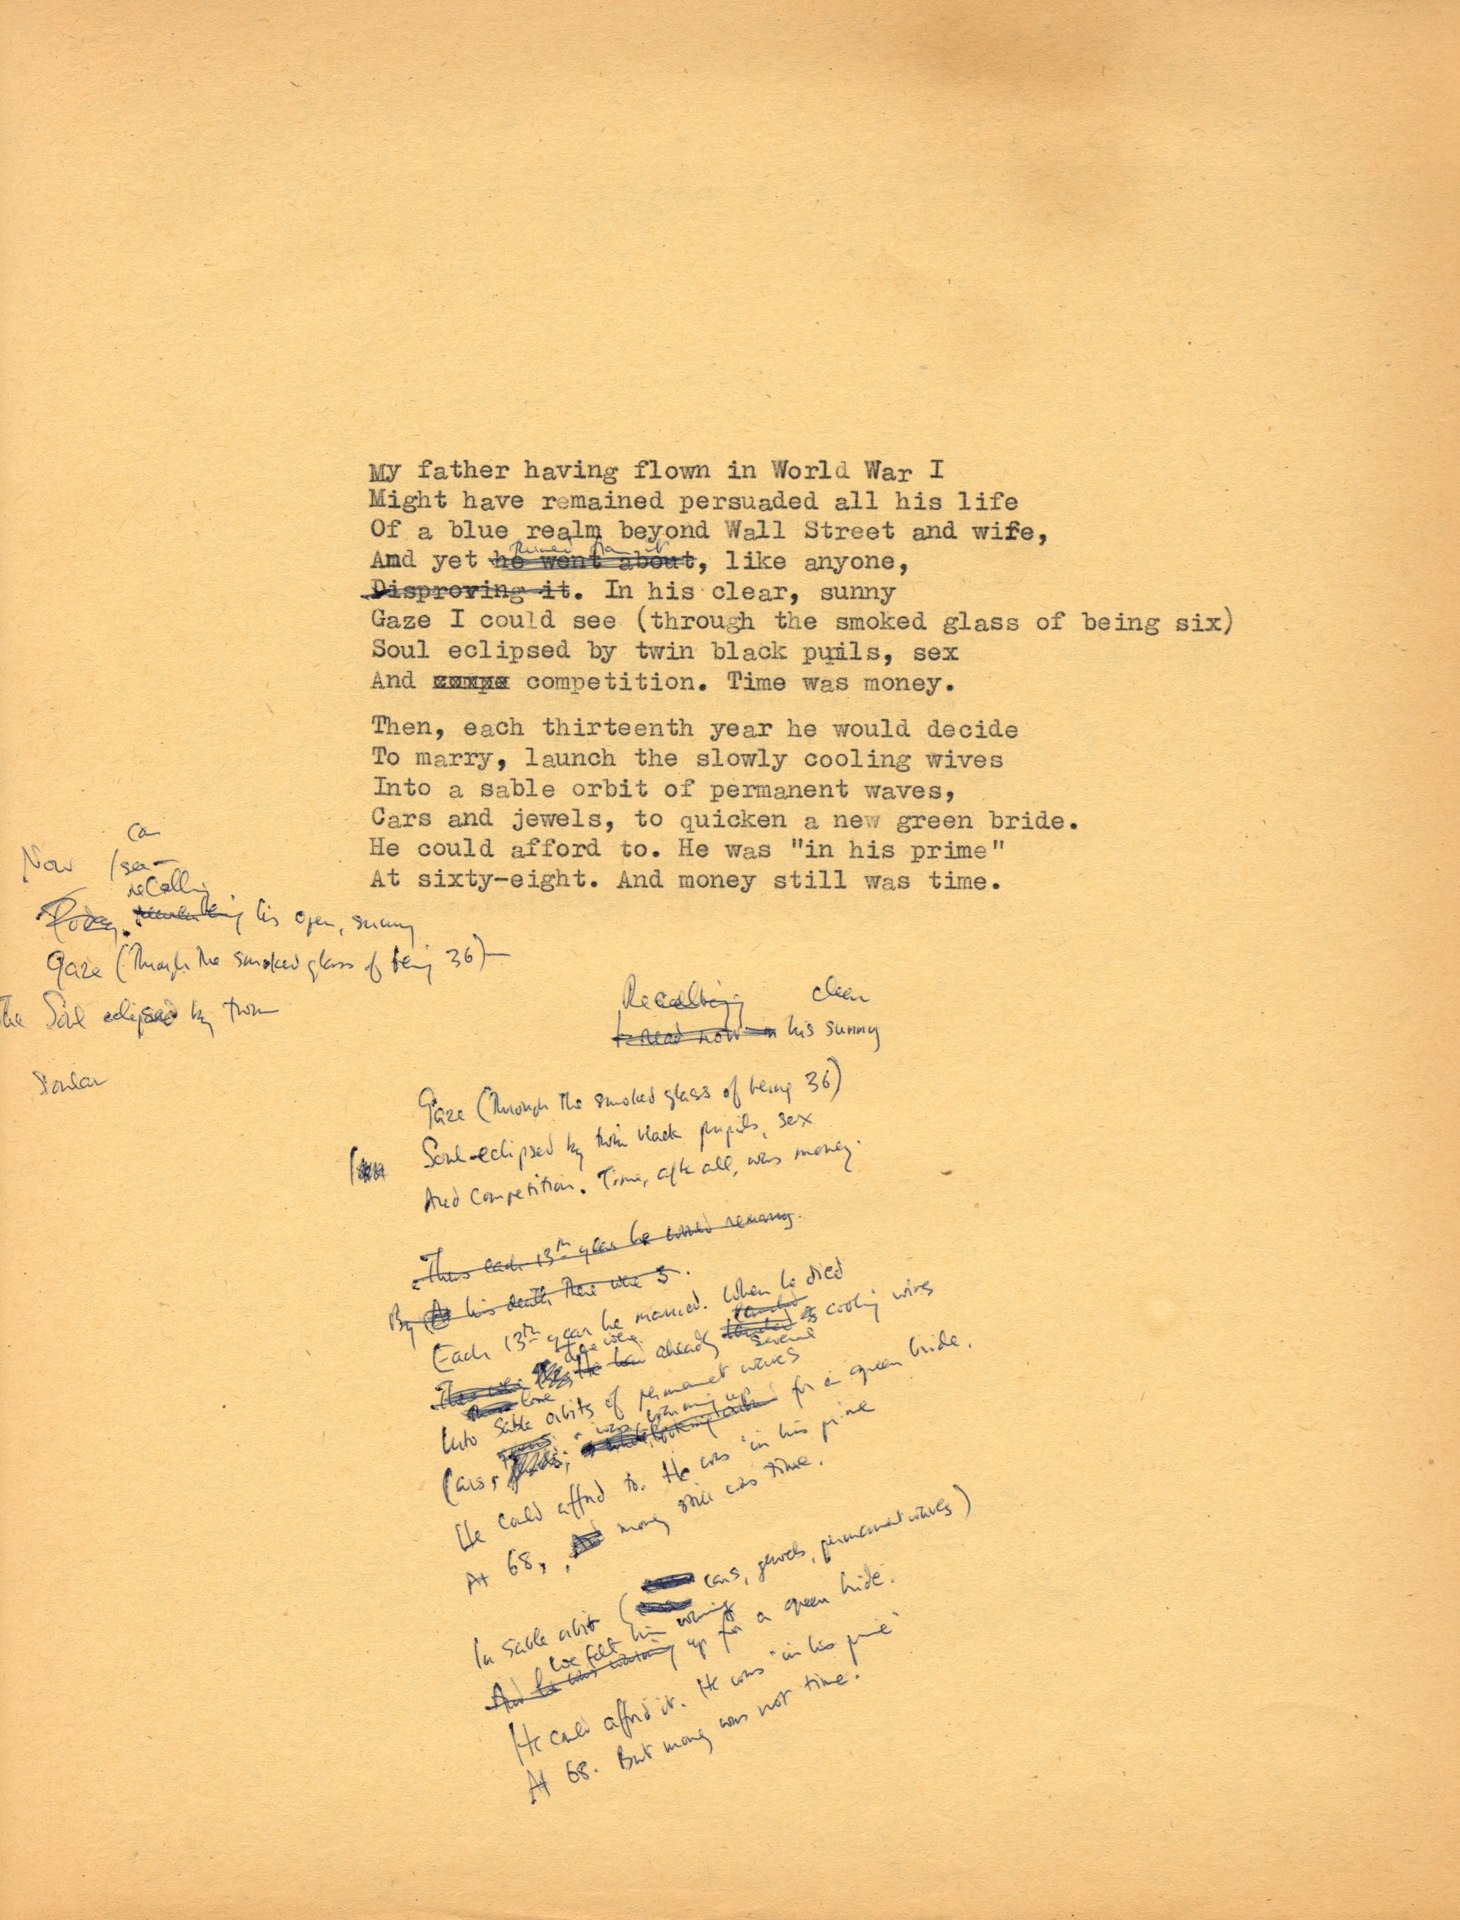 My father having flown in World War I
Might have remained persuaded all his life
Of a blue realm beyond Wall Street and wife,
And yet he went about, like anyone,
Disproving it. In his clear, sunny
Gaze I could see (through the smoked glass of being six)
Soul eclipsed by twin black pupils, sex
And compe competition. Time was money.
Then, each thirteenth year he would decide
To marry, launch the slowly cooling wives
Into a sable orbit of permanent waves,
Cars and jewels, to quicken a new green bride.
He could afford to. He was "in his prime"
At sixty-eight. And money still was time.
can
Now I see—
recalling
Today, remembering his open, sunny
Gaze (through the smoked glass of being 36)—
The Soul eclipsed by twin
Recalling clear
I read now in his sunny
Gaze (through the smoked glass of being 36)
Soul eclipsed by twin black pupils, sex
And competition. Time, after all, was money.
Thus each 13th year he would remarry.
By At his death there were 5.
Each 13th year he married. When he died
There were He had already several cooling wives
Into sable orbits of permanent waves
Cars, was warming up for a green bride.
He could afford to. He was "in his prime
At 68, And money still was time.
In sable orbit ( cars, jewels, permanent waves)
we felt him warming
And he was warming up for a green bride.
He could afford it. He was "in his prime"
At 68. But money was not time.